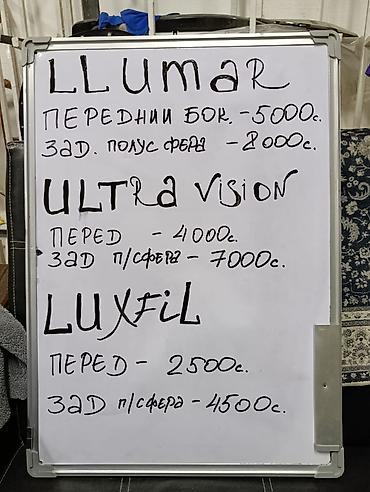 LLUMAR
ПЕРЕДНИЙ БОК. - 5000с.
ЗАД. ПОЛУСФЕРА - 8000с.
ULTRA VISION
ПЕРЕД - 4000с.
ЗАД П/СФЕРА - 7000с.
LUXFIL
ПЕРЕД - 2500с.
ЗАД П/СФЕРА - 4500с.